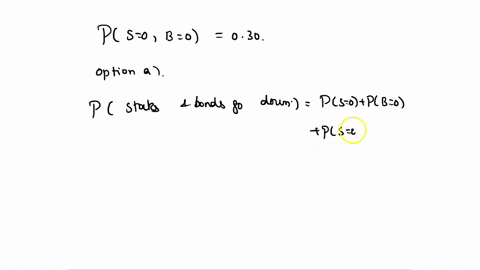 P( S=0, B=0) = 0.30.
option a).
P( stocks & bonds go down.) = P(S=0)+P(B=0)
+P(S=